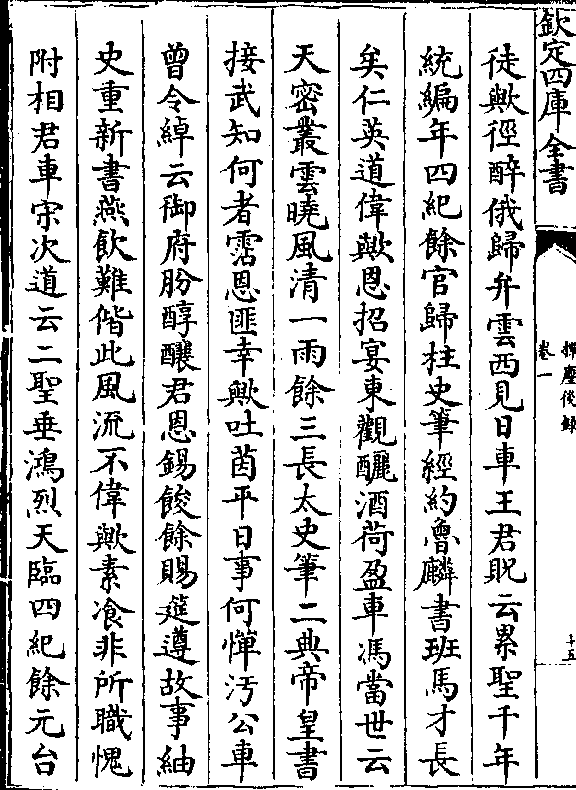 欽定四庫全書
揮麈後錄
卷一
十五
徒歟徑醉俄歸弁雲西見日車王君貺云累聖千年
統編年四紀餘官歸柱史筆經約魯麟書班馬才長
矣仁英道偉歟恩招宴東觀釃酒荷盈車馮當世云
天密叢雲曉風清一雨餘三長太史筆二典帝皇書
接武知何者霑恩匪幸歟吐茵平日事何憚汚公車
曾令綽云御府肦醇釀君恩錫餕餘賜筵遵故事紬
史重新書燕飲難偕此風流不偉歟素飡非所職愧
附相君車宋次道云二聖垂鴻烈天臨四紀餘元台